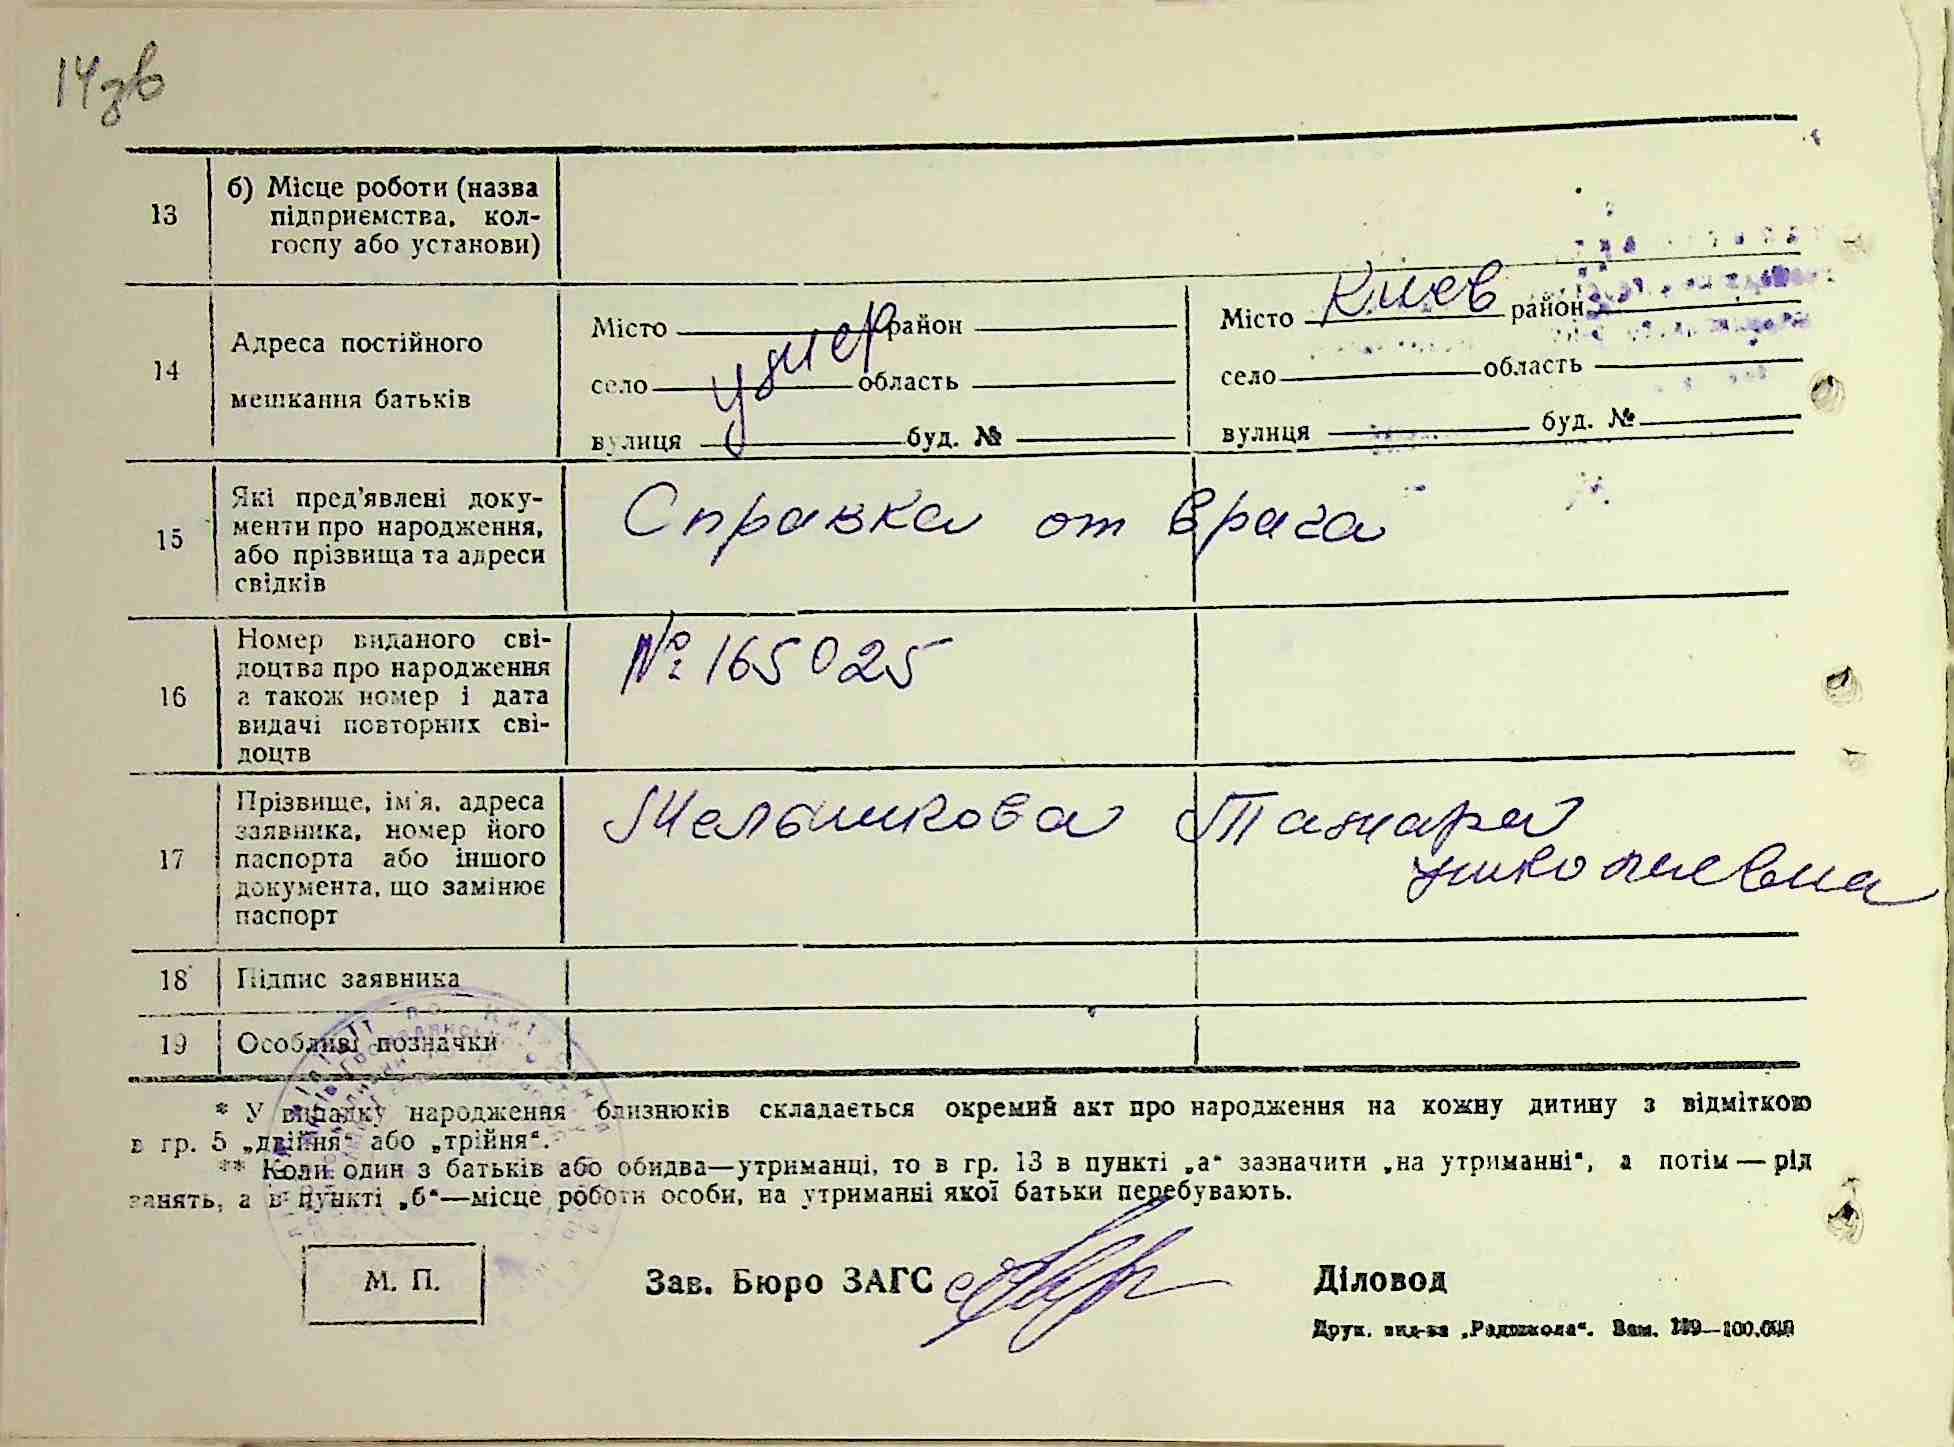 14зв
13
б) Місце роботи (назва
підприємства, кол-
госпу або установи)
14
Адреса постійного
мешкання батьків
Місто район
село область
вулиця буд. №
умер
Місто Киев район
село область
вулиця буд. №
15
Які пред'явлені доку-
менти про народження,
або прізвища та адреси
свідків
Справка от врача
16
Номер виданого сві-
доцтва про народження
а також номер і дата
видачі повторних сві-
доцтв
№ 165025
17
Прізвище, ім'я, адреса
заявника, номер його
паспорта або іншого
документа, що замінює
паспорт
Мельникова Тамара
Николаевна
18 Підпис заявника
19 Особливі позначки
* У випадку народження близнюків складається окремий акт про народження на кожну дитину з відміткою
в гр. 5 „двійня“ або „трійня“.
** Коли один з батьків або обидва—утриманці, то в гр. 13 в пункті „а“ зазначити „на утриманні“, а потім — рід
занять, а в пункті „б“—місце роботи особи, на утриманні якої батьки перебувають.
М. П.
Зав. Бюро ЗАГС
Діловод
Друк. вид-ва „Радшкола“. Зам.